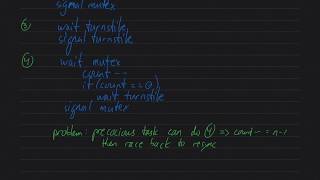 signal mutex
③ wait turnstile
signal turnstile
④ wait mutex
count --
if (count == 0)
wait turnstile
signal mutex
problem: precocious task can do ④ => count-- = n-1
then race back to resync